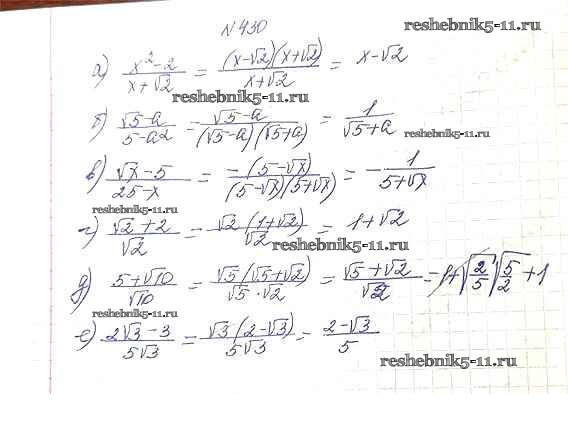 №430
reshebnik5-11.ru
а) (x²-2)/(x+√2) = (x-√2)(x+√2)/(x+√2) = x-√2
reshebnik5-11.ru
б) (√5-a)/(5-a²) = (√5-a)/((√5-a)(√5+a)) = 1/(√5+a)
в) (√x-5)/(25-x) = -(5-√x)/((5-√x)(5+√x)) = -1/(5+√x)
reshebnik5-11.ru
reshebnik5-11.ru
г) (√2+2)/√2 = √2(1+√2)/√2 = 1+√2
reshebnik5-11.ru
д) (5+√10)/√10 = √5(√5+√2)/(√5·√2) = (√5+√2)/√2 = √(5/2)+1
reshebnik5-11.ru
е) (2√3-3)/(5√3) = √3(2-√3)/(5√3) = (2-√3)/5
reshebnik5-11.ru